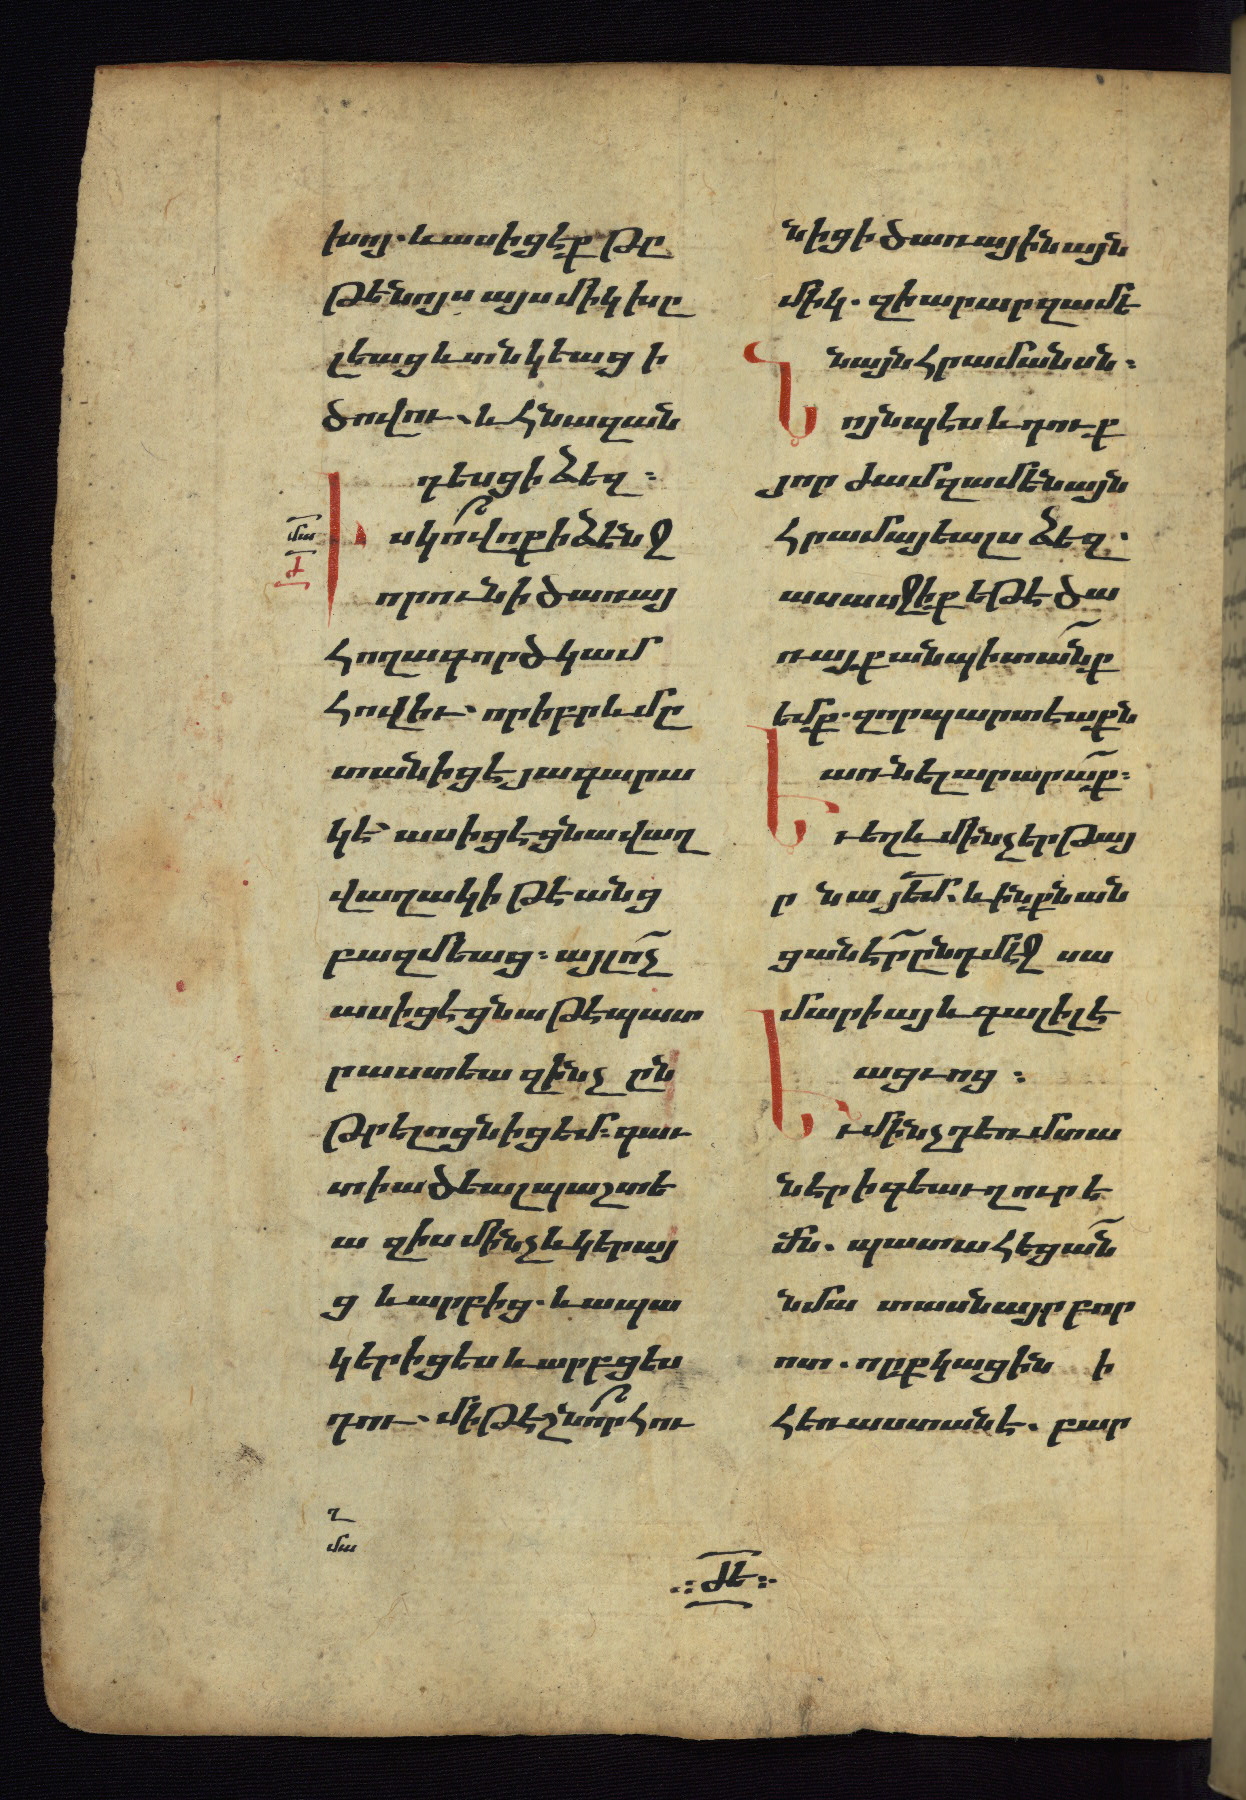 խոյ. և ասիցէք թը
թենոյս այսմիկ խը
լեաց և տնկեաց ի
ծովու. և հնազան
դեսցի ձեզ:
մա
Ժ
Իսկ ո՞վ ոք ի ձէնջ
որ ունի ծառայ
հողագործ կամ
հովիւ. որ իբրև մը
տանիցէ յագարա
կէ՝ ասիցէ ցնա վաղ
վաղակի թէ անց
բազմեաց: այլ ո՞չ
ասիցէ ցնա թէ պատ
րաստեա զինչ ըն
թրելոց նիցեմ. գաւ
տի ած եալ պաշտե
ա զիս մինչև կերայ
ց և արբից. և ապա
կերիցես և արբցես
դու. մի թէ շնո՞րհ ու
ղ
մա
նիցի ծառային այն
միկ. զի արար զամէ
նայն հրամանսն:
Նոյնպէս և դուք
յորժամ զամենայն
հրամայեալս ձեզ.
ասասջիք եթէ ծա
ռայք անպիտա՜նք
եմք. զոր պարտէաքն
առնել արարա՜ք:
Եւ եղև մինչ երթայ
ր նա յէ՜մ. և ինքն ան
ցանէր ընդ մէջ սա
մարիայ և գալիլէ
ացւոց:
Եւ մինչդեռ մտա
նէր ի գեաւղ ուրե
մն. պատահեցա՜ն
նմա տասն այր բոր
ոտ. ոըք կացին ի
հեռաստանէ. բար
ԺԵ